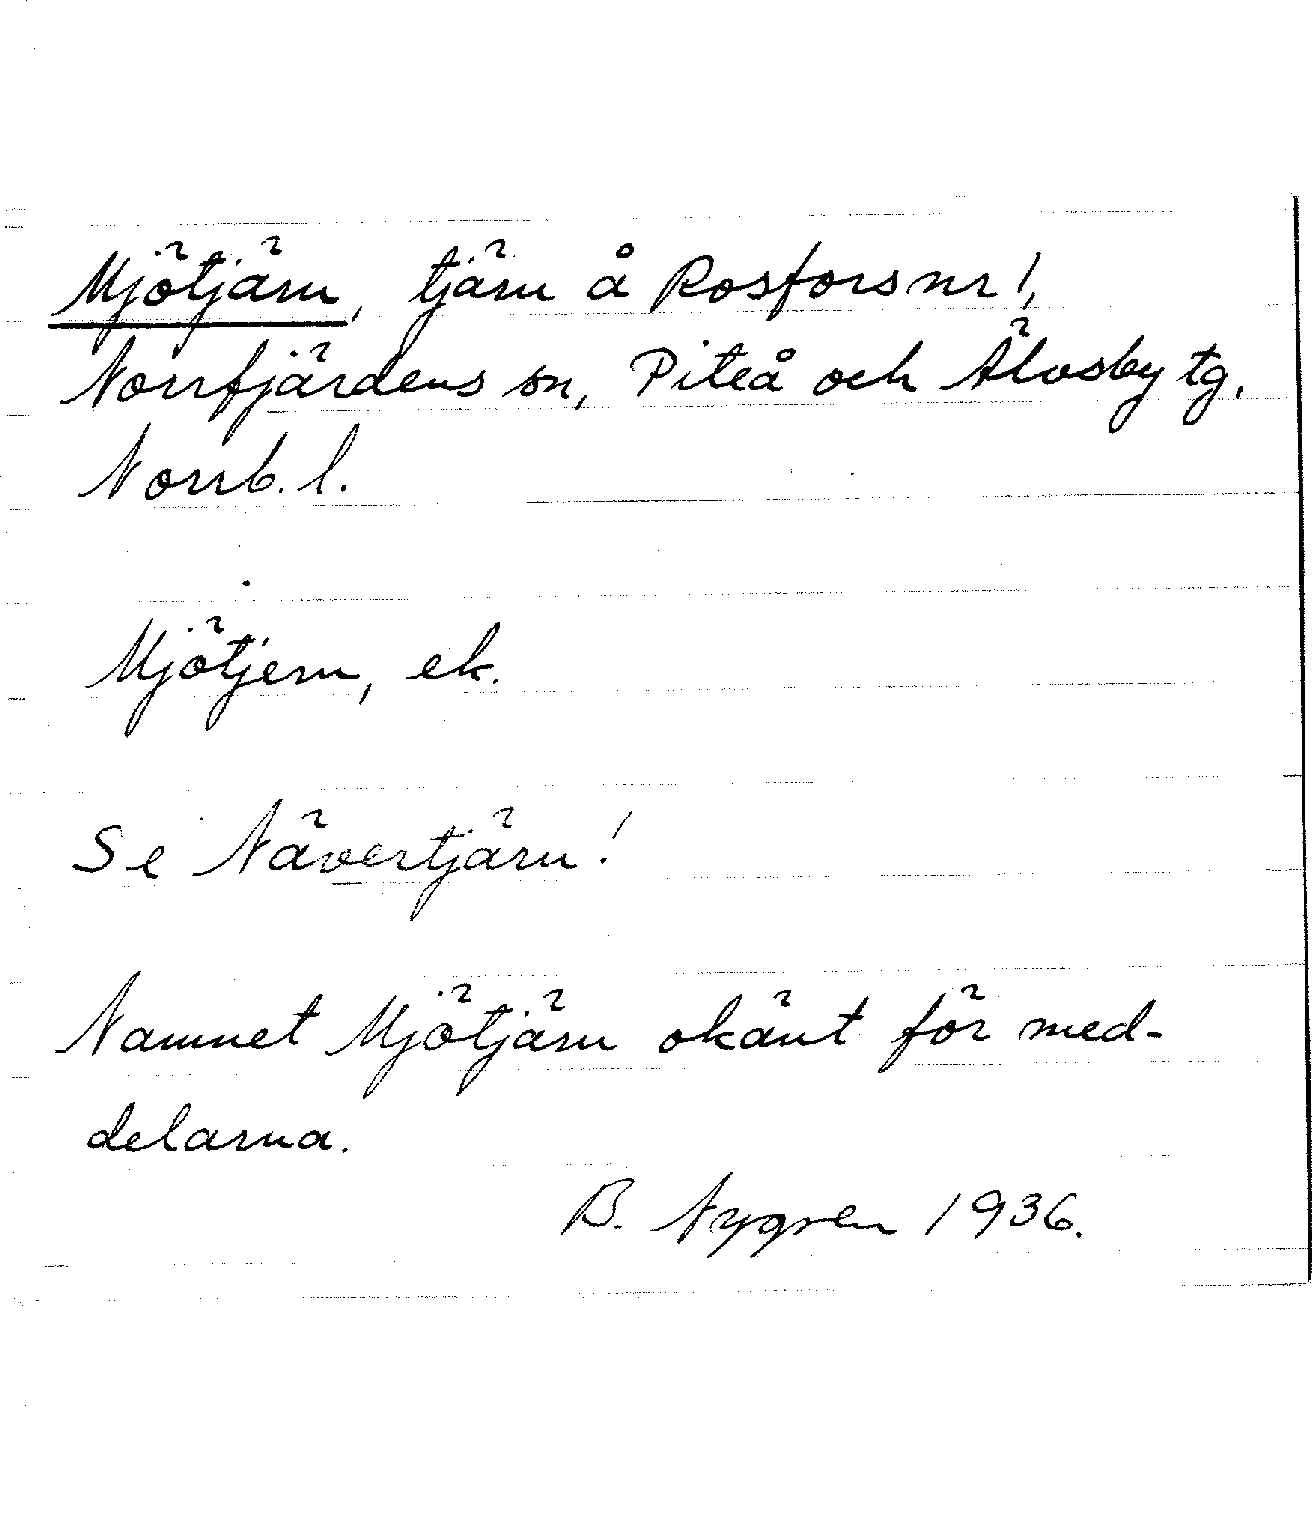 Mjötjärn, tjärn å Rosfors nr 1,
Norrfjärdens sn, Piteå och Älvsby tg,
Norrb. l.
Mjötjern, ek.
Se Nävertjärn!
Namnet Mjötjärn okänt för med-
delarna.
B. Nygren 1936.